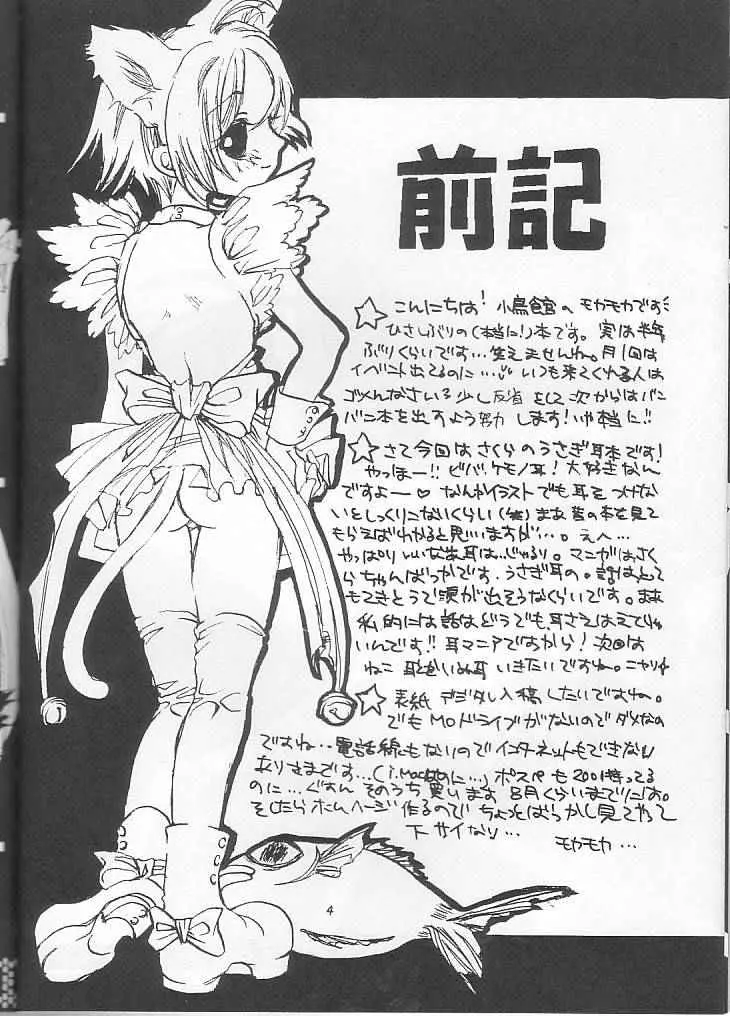 前記
こんにちは! 小鳥館のモカモカです
ひさしぶりの(本当に!)本です。実は半年
ぶりくらいです…笑えませんね。月1回は
イベント出てるのに…いつも来てくれる人は
ゴメんなさいネ少し反省をして次からはバン
バン本を出すよう努力します!いや本当に!!
さて今回はさくらのうさぎ耳本です!
やっほー!!ビバ、ケモノ耳!大好きなん
ですよー♡なんかイラストでも耳をつけない
としっくりこないくらい(笑)まあ昔の本を見て
もらえばわかると思いますが…。えへ…
やっぱりいいなあ耳は…じゅるり。マンガはさく
らちゃんばっかです.うさぎ耳の。話はとて
もてきとうで涙が出そうなくらいです。まあ
私的には話はどうでも、耳さえはえてりゃ
いんです!!耳マニアですから!次回は
ねこ耳とかいぬ耳いきたいですね。ニヤリ
表紙デジタル入稿したいですねー。
でもMOドライブがないのでダメなの
ですね…電話線もないのでインターネットもできない
ありさまです…(i.Macなのに…)ポスペも2001持ってる
のに…ぐすん そのうち買います 8月くらいまでには。
そしたらホームページ作るのでちょっとばっかし見てやって
下サイなり…
モカモカ…
4